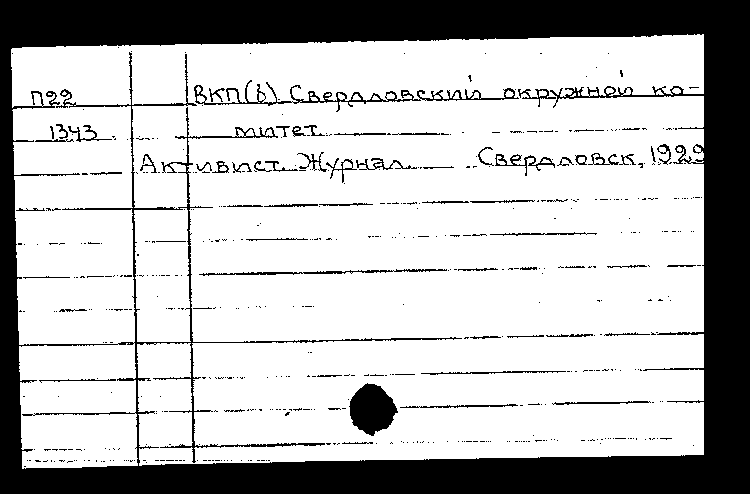 П22 ВКП(б) Свердловский окружной ко-
1343 митет
Активист. Журнал. Свердловск, 1929